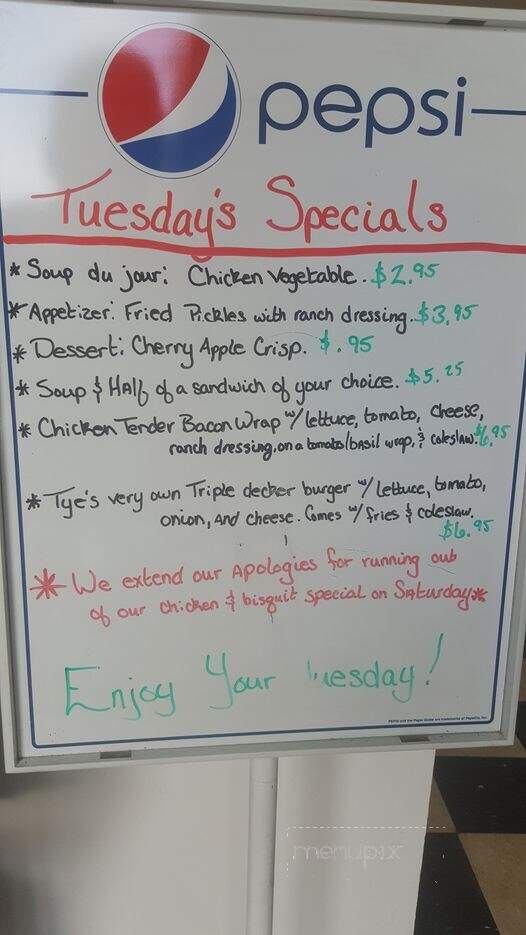 pepsi
Tuesday's Specials
* Soup du jour: Chicken Vegetable.. $2.95
* Appetizer: Fried Pickles with ranch dressing. $3.95
* Dessert: Cherry Apple Crisp. $.95
* Soup & Half of a sandwich of your choice. $5.25
* Chicken Tender Bacon Wrap w/ lettuce, tomato, cheese,
ranch dressing, on a tomato/basil wrap, & coleslaw. $6.95
* Tye's very own Triple decker burger w/ lettuce, tomato,
onion, And cheese. Comes w/ fries & coleslaw.
$6.95
* We extend our Apologies for running out
of our chicken & bisquit special on Saturday *
Enjoy Your Tuesday!
PEPSI and the Pepsi Globe are trademarks of PepsiCo, Inc.
menupix